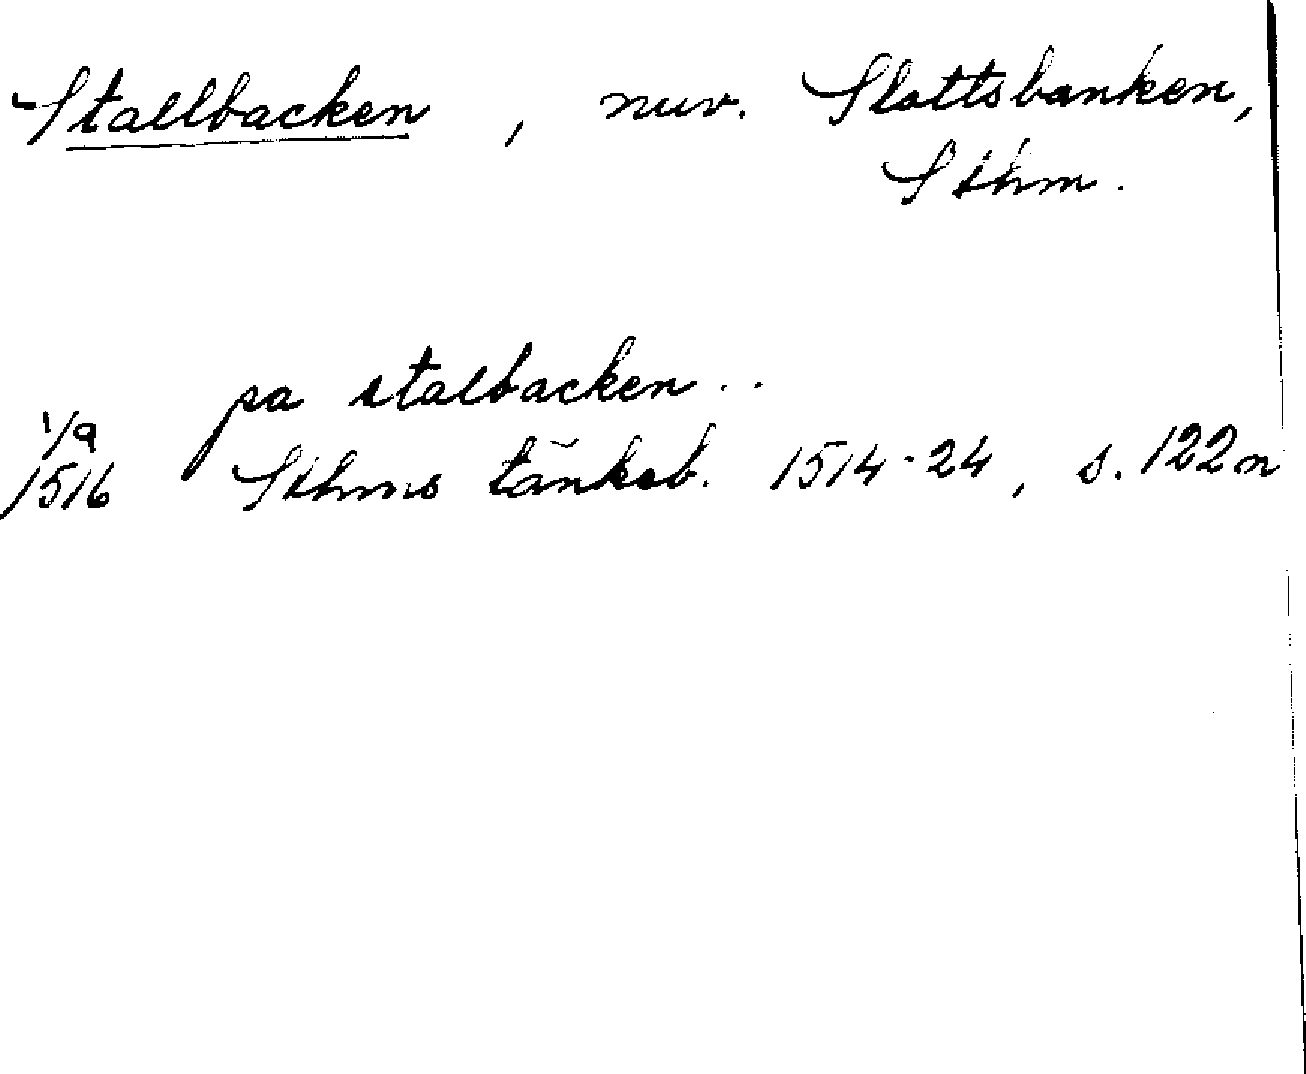 Stallbacken, nuv. Slottsbanken,
Sthm.
pa stalbacken..
1/9
1516 Sthms tänkeb. 1514-24, s. 122 n